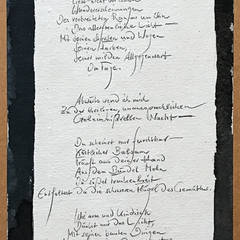 Wundererscheinungen
Des verbreiteten Raums um ihn
Das allerfreuliche Licht —
Mit seinen Strahlen und Wogen
Seinen Farben,
Seiner milden Allgegenwart
Im Tage.
Abwärts wend ich mich
Zu der heiligen, unaussprechlichen
Geheimnißvollen Nacht —
Du scheinst nur furchtbar
Köstlicher Balsam
Träuft aus deiner Hand
Aus dem Bündel Mohn
In süßer Trunkenheit
Entfaltest du die schweren Flügel des Gemüthes.
Wie arm und kindisch
Dünkt mir das Licht,
Mit seinen bunten Dingen